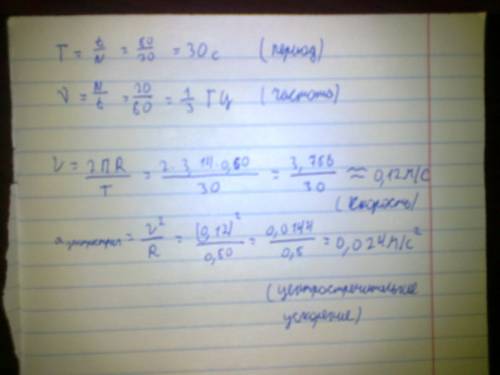 T = t/N = 60/20 = 30 с (период)
V = N/t = 20/60 = 1/3 Гц (частота)
V = 2ПR/T = 2·3,14·0,60/30 = 3,768/30 ≈ 0,12 м/с
(скорость)
a центростр = V²/R = (0,12)²/0,50 = 0,0144/0,6 = 0,024 м/с²
(центростремительное
ускорение)